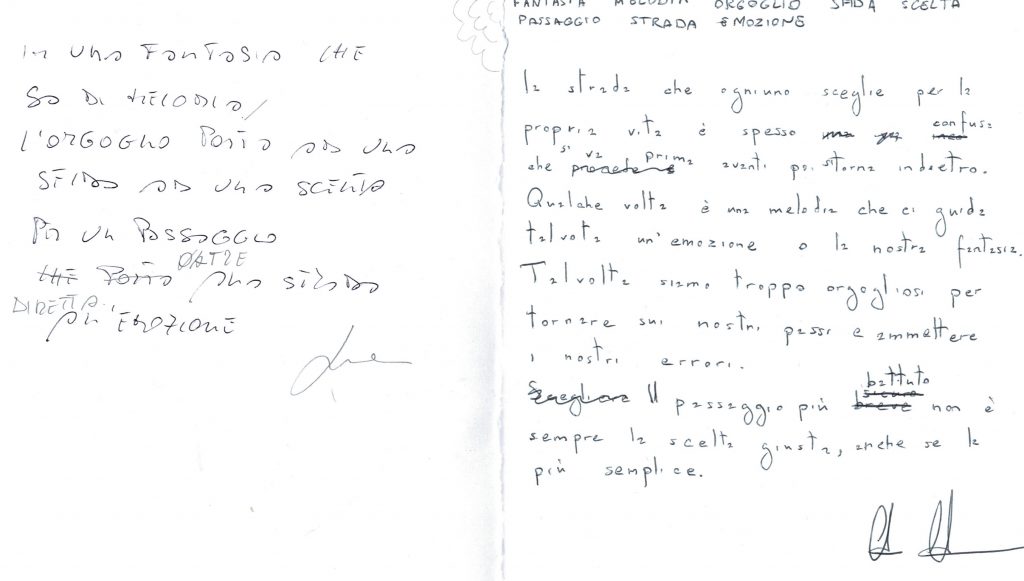 IN UNA FANTASIA CHE
SA DI MELODIA/
L'ORGOGLIO PORTA AD UNA
SFIDA AD UNA SCELTA
PER UN PASSAGGIO
D'ARTE
CHE PORTA ALLA STRADA
DIRETTA
ALL'EMOZIONE
FANTASIA MELODIA ORGOGLIO SFIDA SCELTA
PASSAGGIO STRADA EMOZIONE
la strada che ogniuno sceglie per la
propria vita è spesso confusa
che si va prima avanti poi storna indietro.
Qualche volta è una melodia che ci guida
talvolta un'emozione o la nostra fantasia.
Talvolta siamo troppo orgogliosi per
tornare sui nostri passi e ammettere
i nostri errori.
battuto
Scegliere Il passaggio più breve non è
sempre la scelta giusta, anche se la
più semplice.